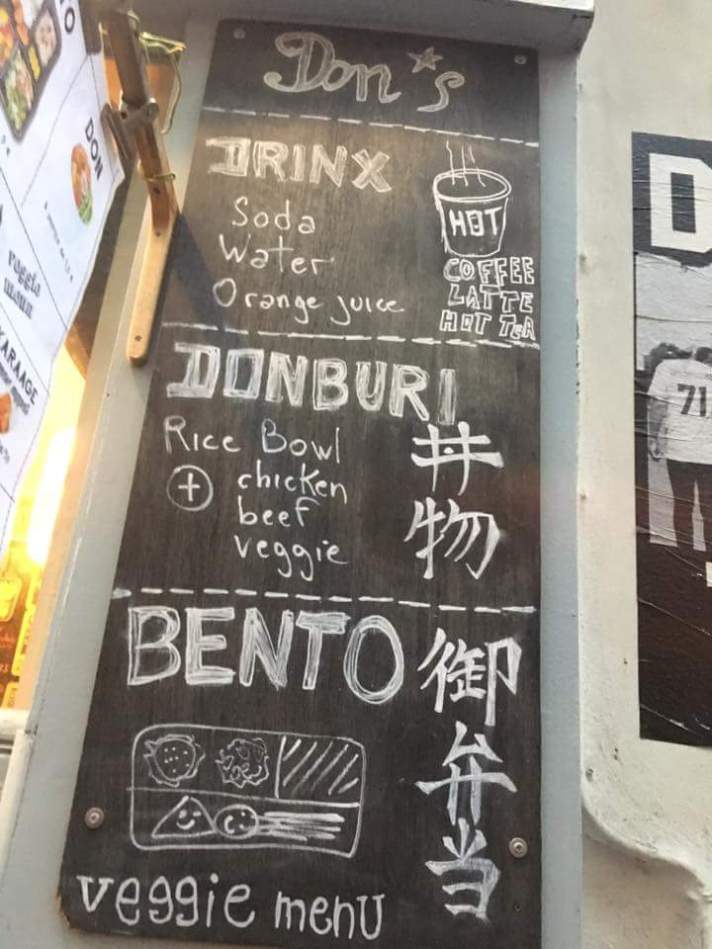 Don's
DRINX
Soda
Water
Orange juice
HOT
COFFEE
LATTE
HOT TEA
DONBURI
Rice Bowl
+ chicken
beef
veggie
丼物
BENTO
御弁当
veggie menu
DON
veggie
menu
KARAAGE
D
71